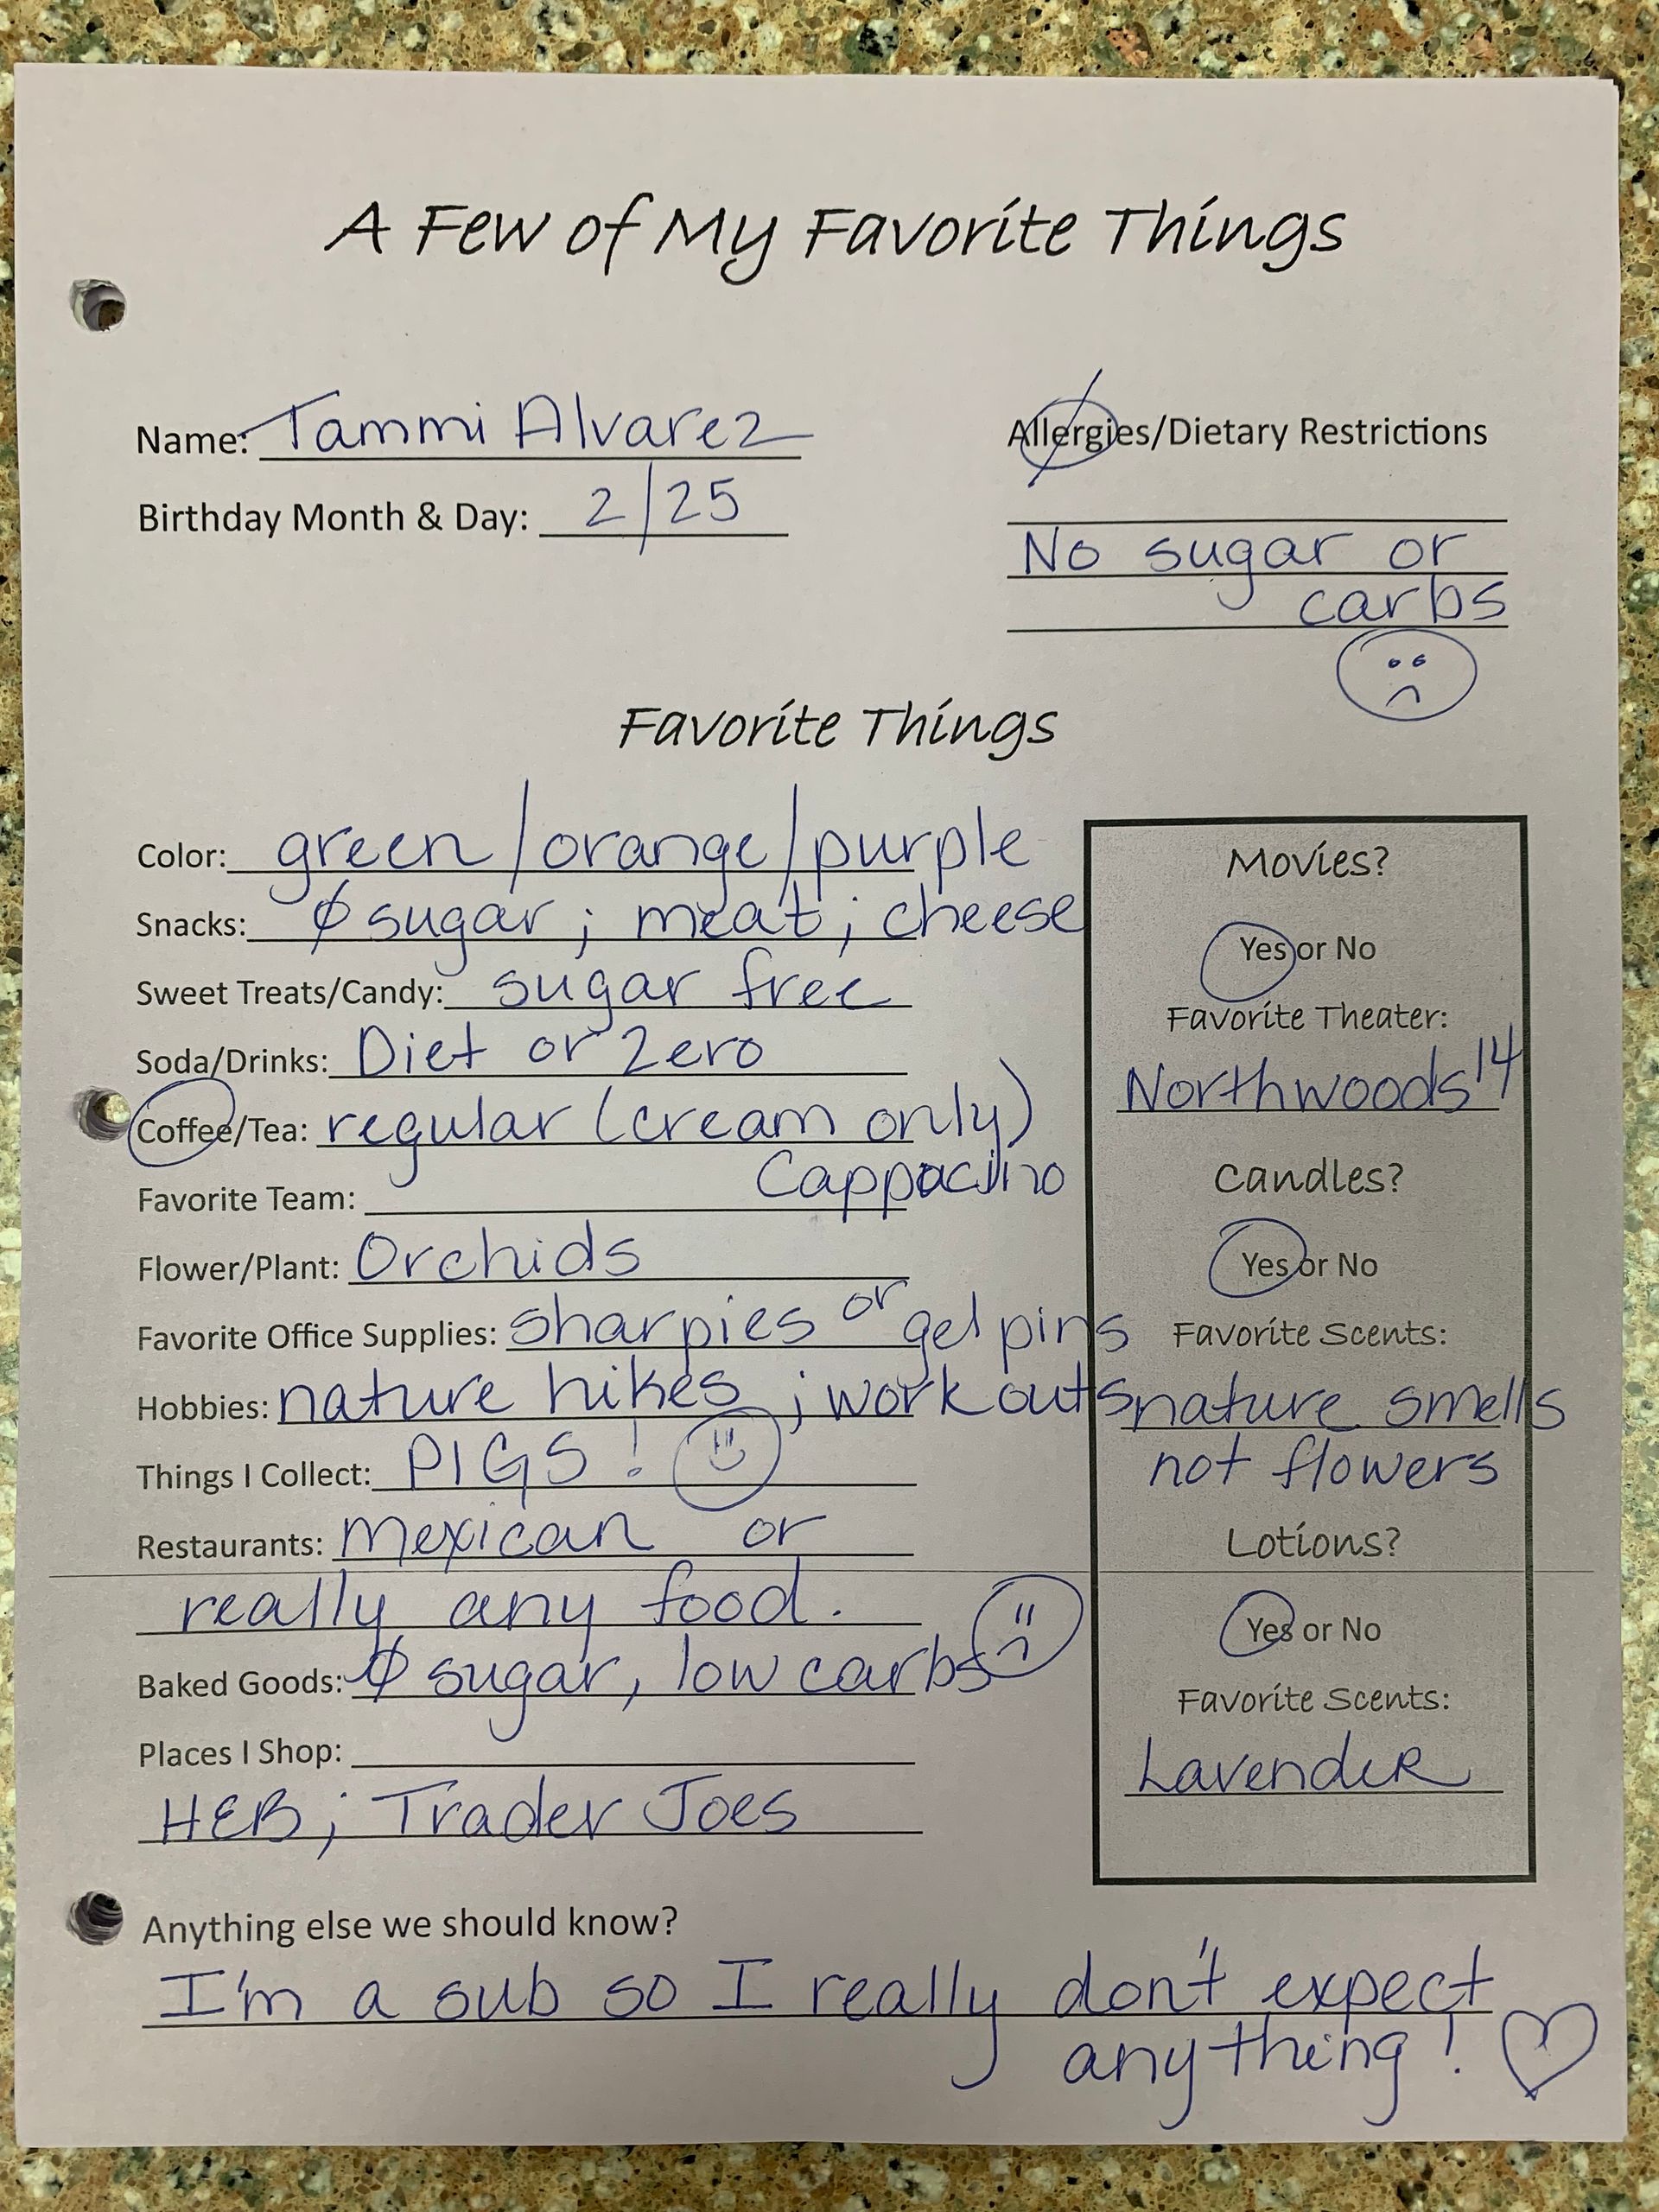 A Few of My Favorite Things
Name: Tammi Alvarez
Birthday Month & Day: 2/25
Allergies/Dietary Restrictions
No sugar or
carbs
Favorite Things
Color: green/orange/purple
Snacks: ∅ sugar; meat; cheese
Sweet Treats/Candy: sugar free
Soda/Drinks: Diet or Zero
Coffee/Tea: regular (cream only)
Cappacino
Favorite Team:
Flower/Plant: Orchids
Favorite Office Supplies: sharpies or gel pins
Hobbies: nature hikes; work outs
Things I Collect: PIGS!
Restaurants: Mexican or
really any food.
Baked Goods: ∅ sugar, low carbs
Places I Shop:
HEB; Trader Joes
Movies?
Yes or No
Favorite Theater:
Northwoods 14
Candles?
Yes or No
Favorite Scents:
nature smells
not flowers
Lotions?
Yes or No
Favorite Scents:
Lavender
Anything else we should know?
I'm a sub so I really don't expect
anything!